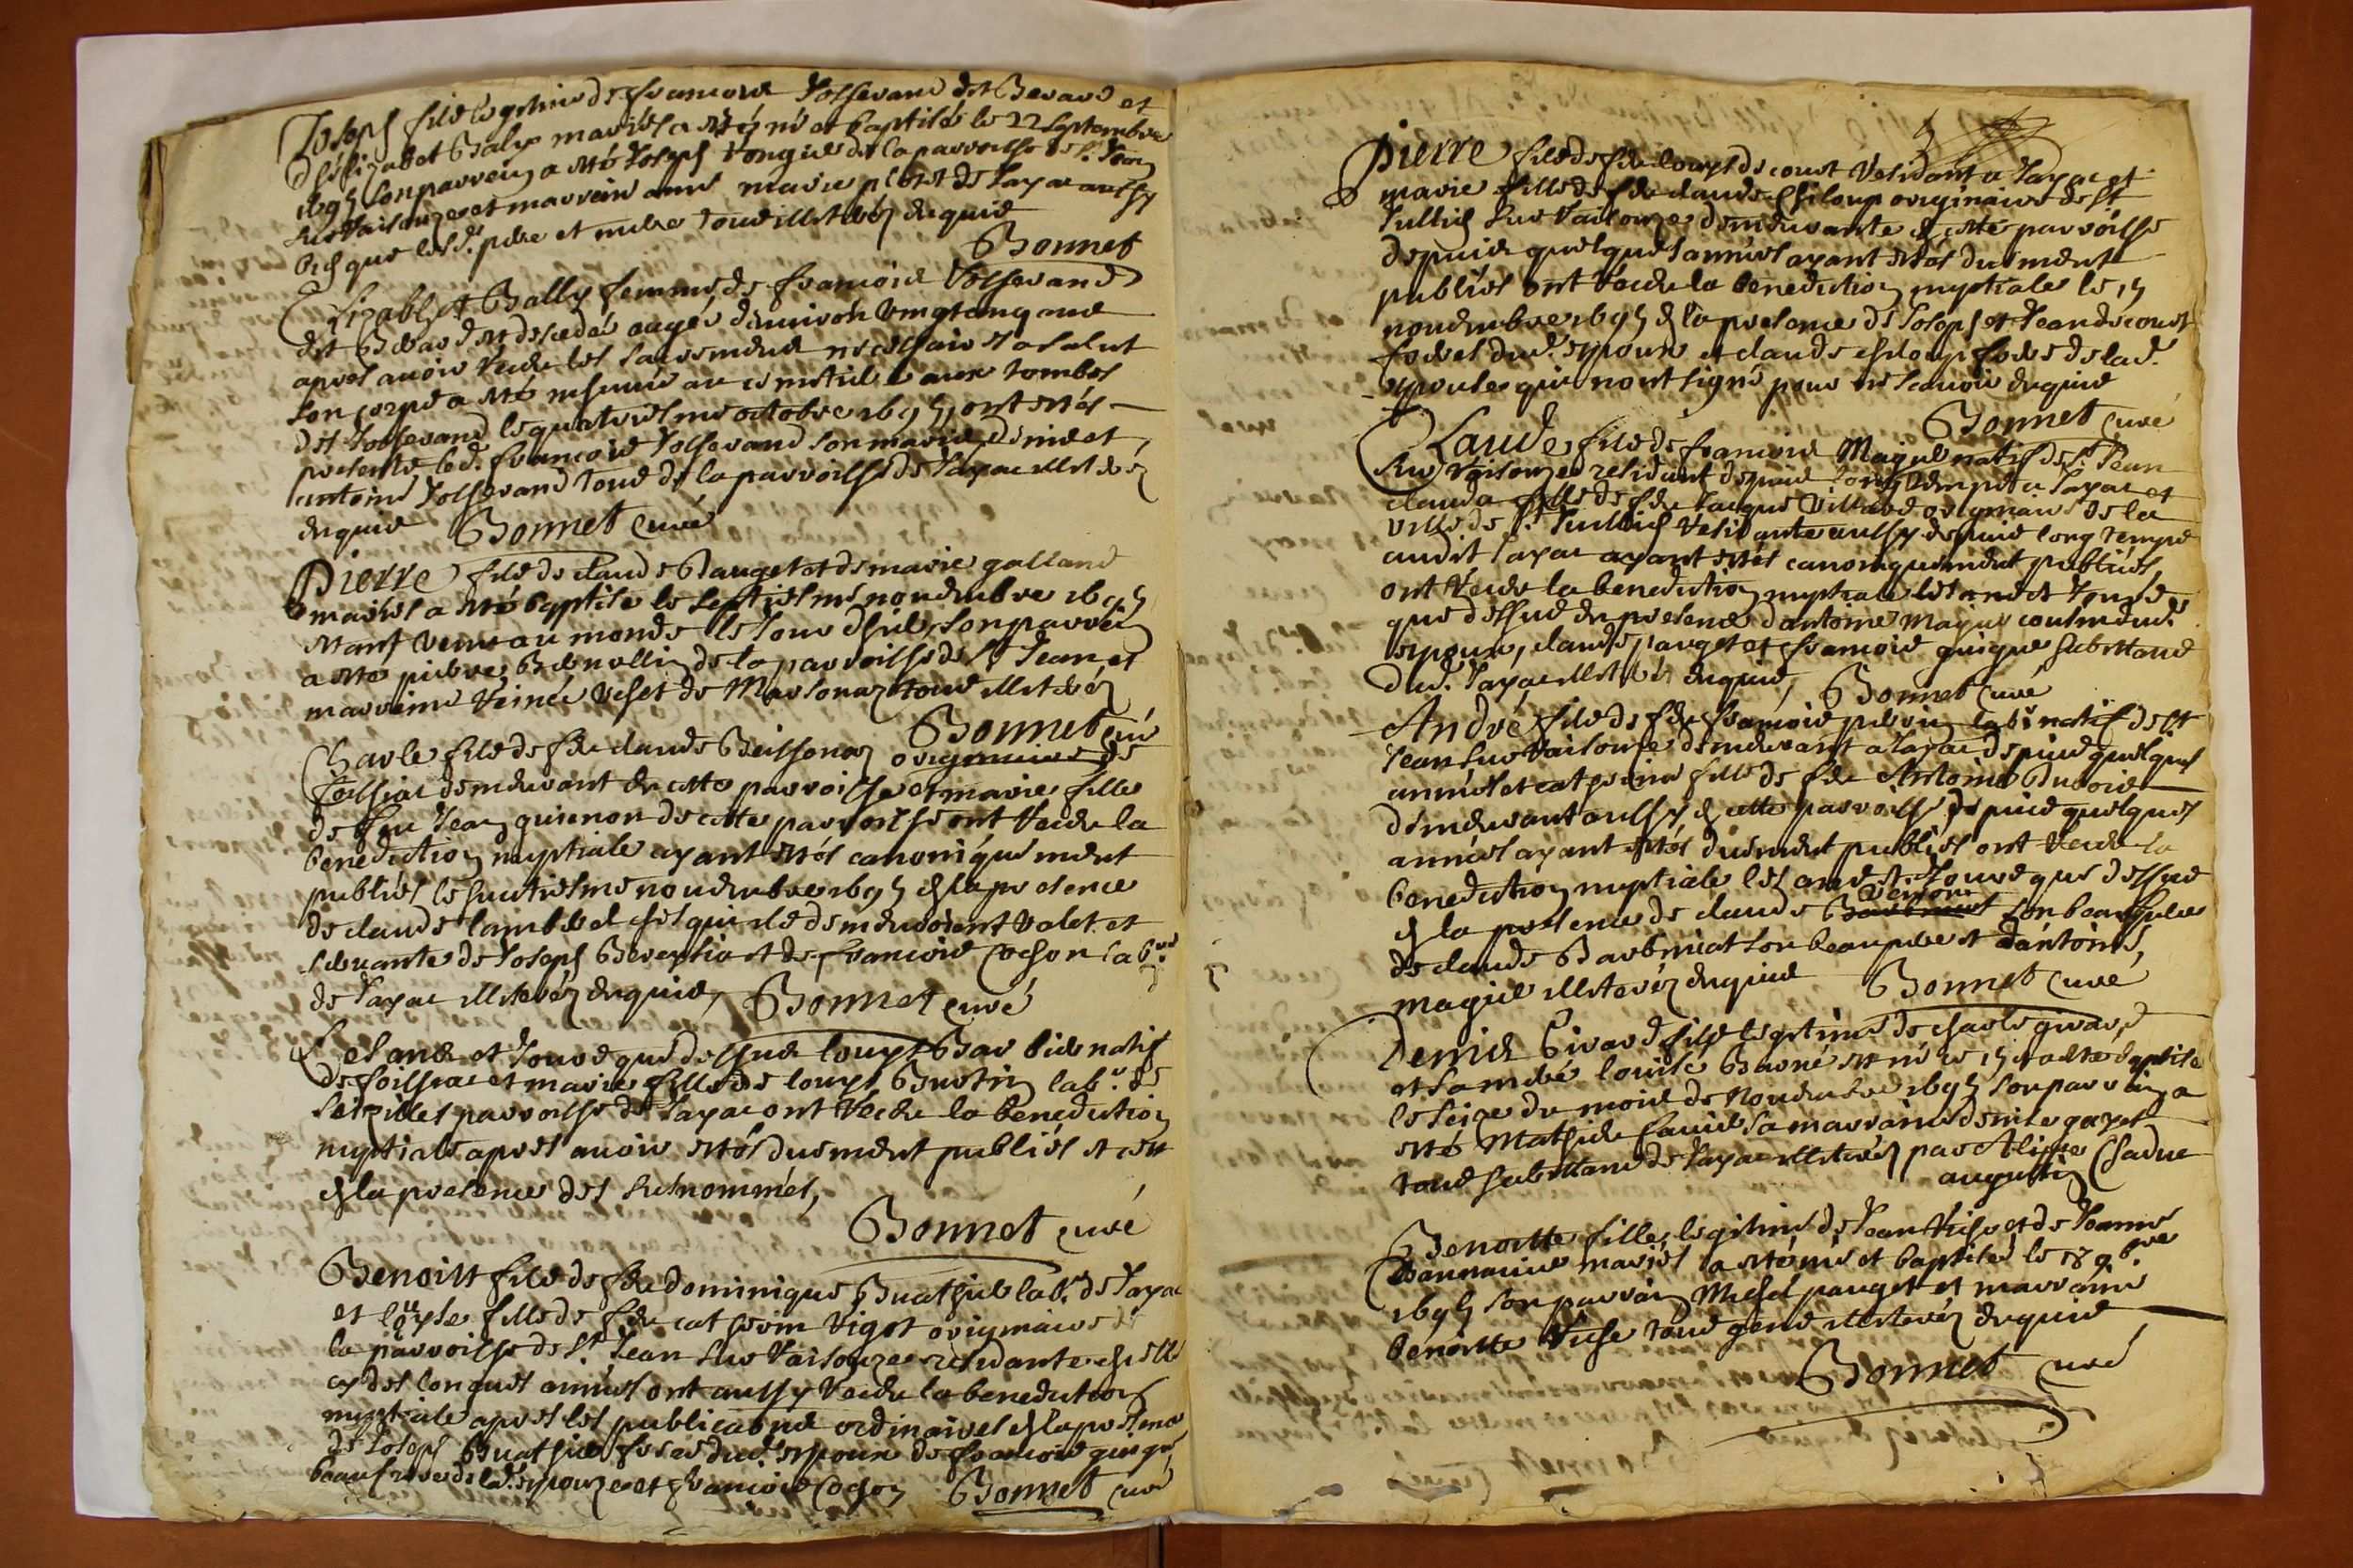 Joseph fils legitime de francois Josserand dit Berard et
d'helizabet Baly mariés a esté né et baptisé le 22 septembre
1695 son parrein a esté Joseph de la parroisse de St. Jean
sur Raisouze et marreine anne marie de Jayac aussy
bien que lesd. pere et mere tous illiterés enquis
Bonnet
Elizabet Bally femme de francois Josserand
dit Berard est decedée aagée d'environ vingt cinq ans
apres avoir receu les sacremens necessaires a salut
son corps a esté inhumé au cimetiere aux tombes
des Josserand le quatriesme octobre 1695, ont estés
presents led. francois Josserand son mari, denis et
antoine Josserand tous de la parroisse de Jayac illiterés
enquis Bonnet curé
Pierre fils de claude Pauget et de marie galland
mariés a esté baptisé le septiesme novembre 1695
estant venu au monde le Jour d'hier, son parrein
a esté pierre de la parroisse de St. Jean, et
marreine de Marsonaz tous illiterés
Bonnet curé
Charle fils de feu claude Beissonaz originaire de
foissiac demeurant en cette parroisse et marie fille
de feu Jean guienon de cette parroisse ont receu la
benediction nuptiale ayant estés canoniquement
publiés le huitiesme novembre 1695 en la presence
de claude lamberet qui ils demeuroient valet et
servante de Joseph et de francois Cochon lab.rs
de Jayac illiterés enquis, Bonnet curé
Les an et Jour que dessus louys Barbier natif
de foissiac et marie fille de louys Bertin lab.r de
parroisse de Jayac ont receu la benediction
nuptiale apres avoir estés duement publiés et cett
en la presence des susnommés,
Bonnet curé
Benoist fils de feu dominique Buathier lab.r de Jayac
et louyse fille de feu catherin Vigot originaire de
la parroisse de St. Jean sur Raisouze residante en elle
cy des longues années ont aussy receu la benediction
nuptiale apres les publications ordinaires en la presence
de Joseph Buathier frere dud. espoux de francois guigue
beaufrere de lad. espouze et francois Cochon Bonnet curé
Pierre fils de feu louys de court residant a Jayac et
marie fille de feu claude Chiloup originaire de St
Jullien sur Raisouze demeurante en cette parroisse
depuis quelques années ayant estés duement
publiés ont receu la benediction nuptiale le 15
novembre 1695 en la presence de Joseph et Jean de court
freres dud. espoux et claude chiloup frere de lad.
espouse qui n'ont signé pour ne scavoir enquis
Bonnet curé
Claude fils de francois Majul natif de St. Jean
sur Raisouze residant depuis longtemps a Jayac et
clauda fille de feu Jacque Villard originaire de la
ville de St. Jullien residante aussy depuis long temps
audit Jayac ayant estés canoniquement publiés,
ont receu la benediction nuptiale les an et Jour
que dessus en presence d'antoine Majul cousin dud.
espoux, claude pauget et francois guigue habitans
dud. Jayac illiterés enquis, Bonnet curé
André fils de feu francois pervin lab.r natif de St
Jean sur Raisouze demeurant a Jayac depuis quelques
années et catherine fille de feu Antoine Buvois
demeurant aussy en cette parroisse depuis quelques
années ayant estés duement publiés ont receu la
benediction nuptiale les an et Jour que dessus
en la presence de claude son beaufrere
de claude Barbmiat son beaupere et d'antoine
magul illiterés enquis Bonnet curé
Denis Girard fils legitime de charle girard
et sa mere louise Barné est né le 15 et a esté baptisé
le seize du mois de Novembre 1695 son parrain a
esté Mathieu sa marraine denise gayet
tous habitans de Jayac illiterés par Alixte
augustin Chadue
Benoitte fille legitime de Jean Viche et de Jeanne
mariés a esté née et baptisée le 18 9bre
1695 son parrain Michel pauget et marraine
benoitte Viche tous gens illiterés enquis
Bonnet curé